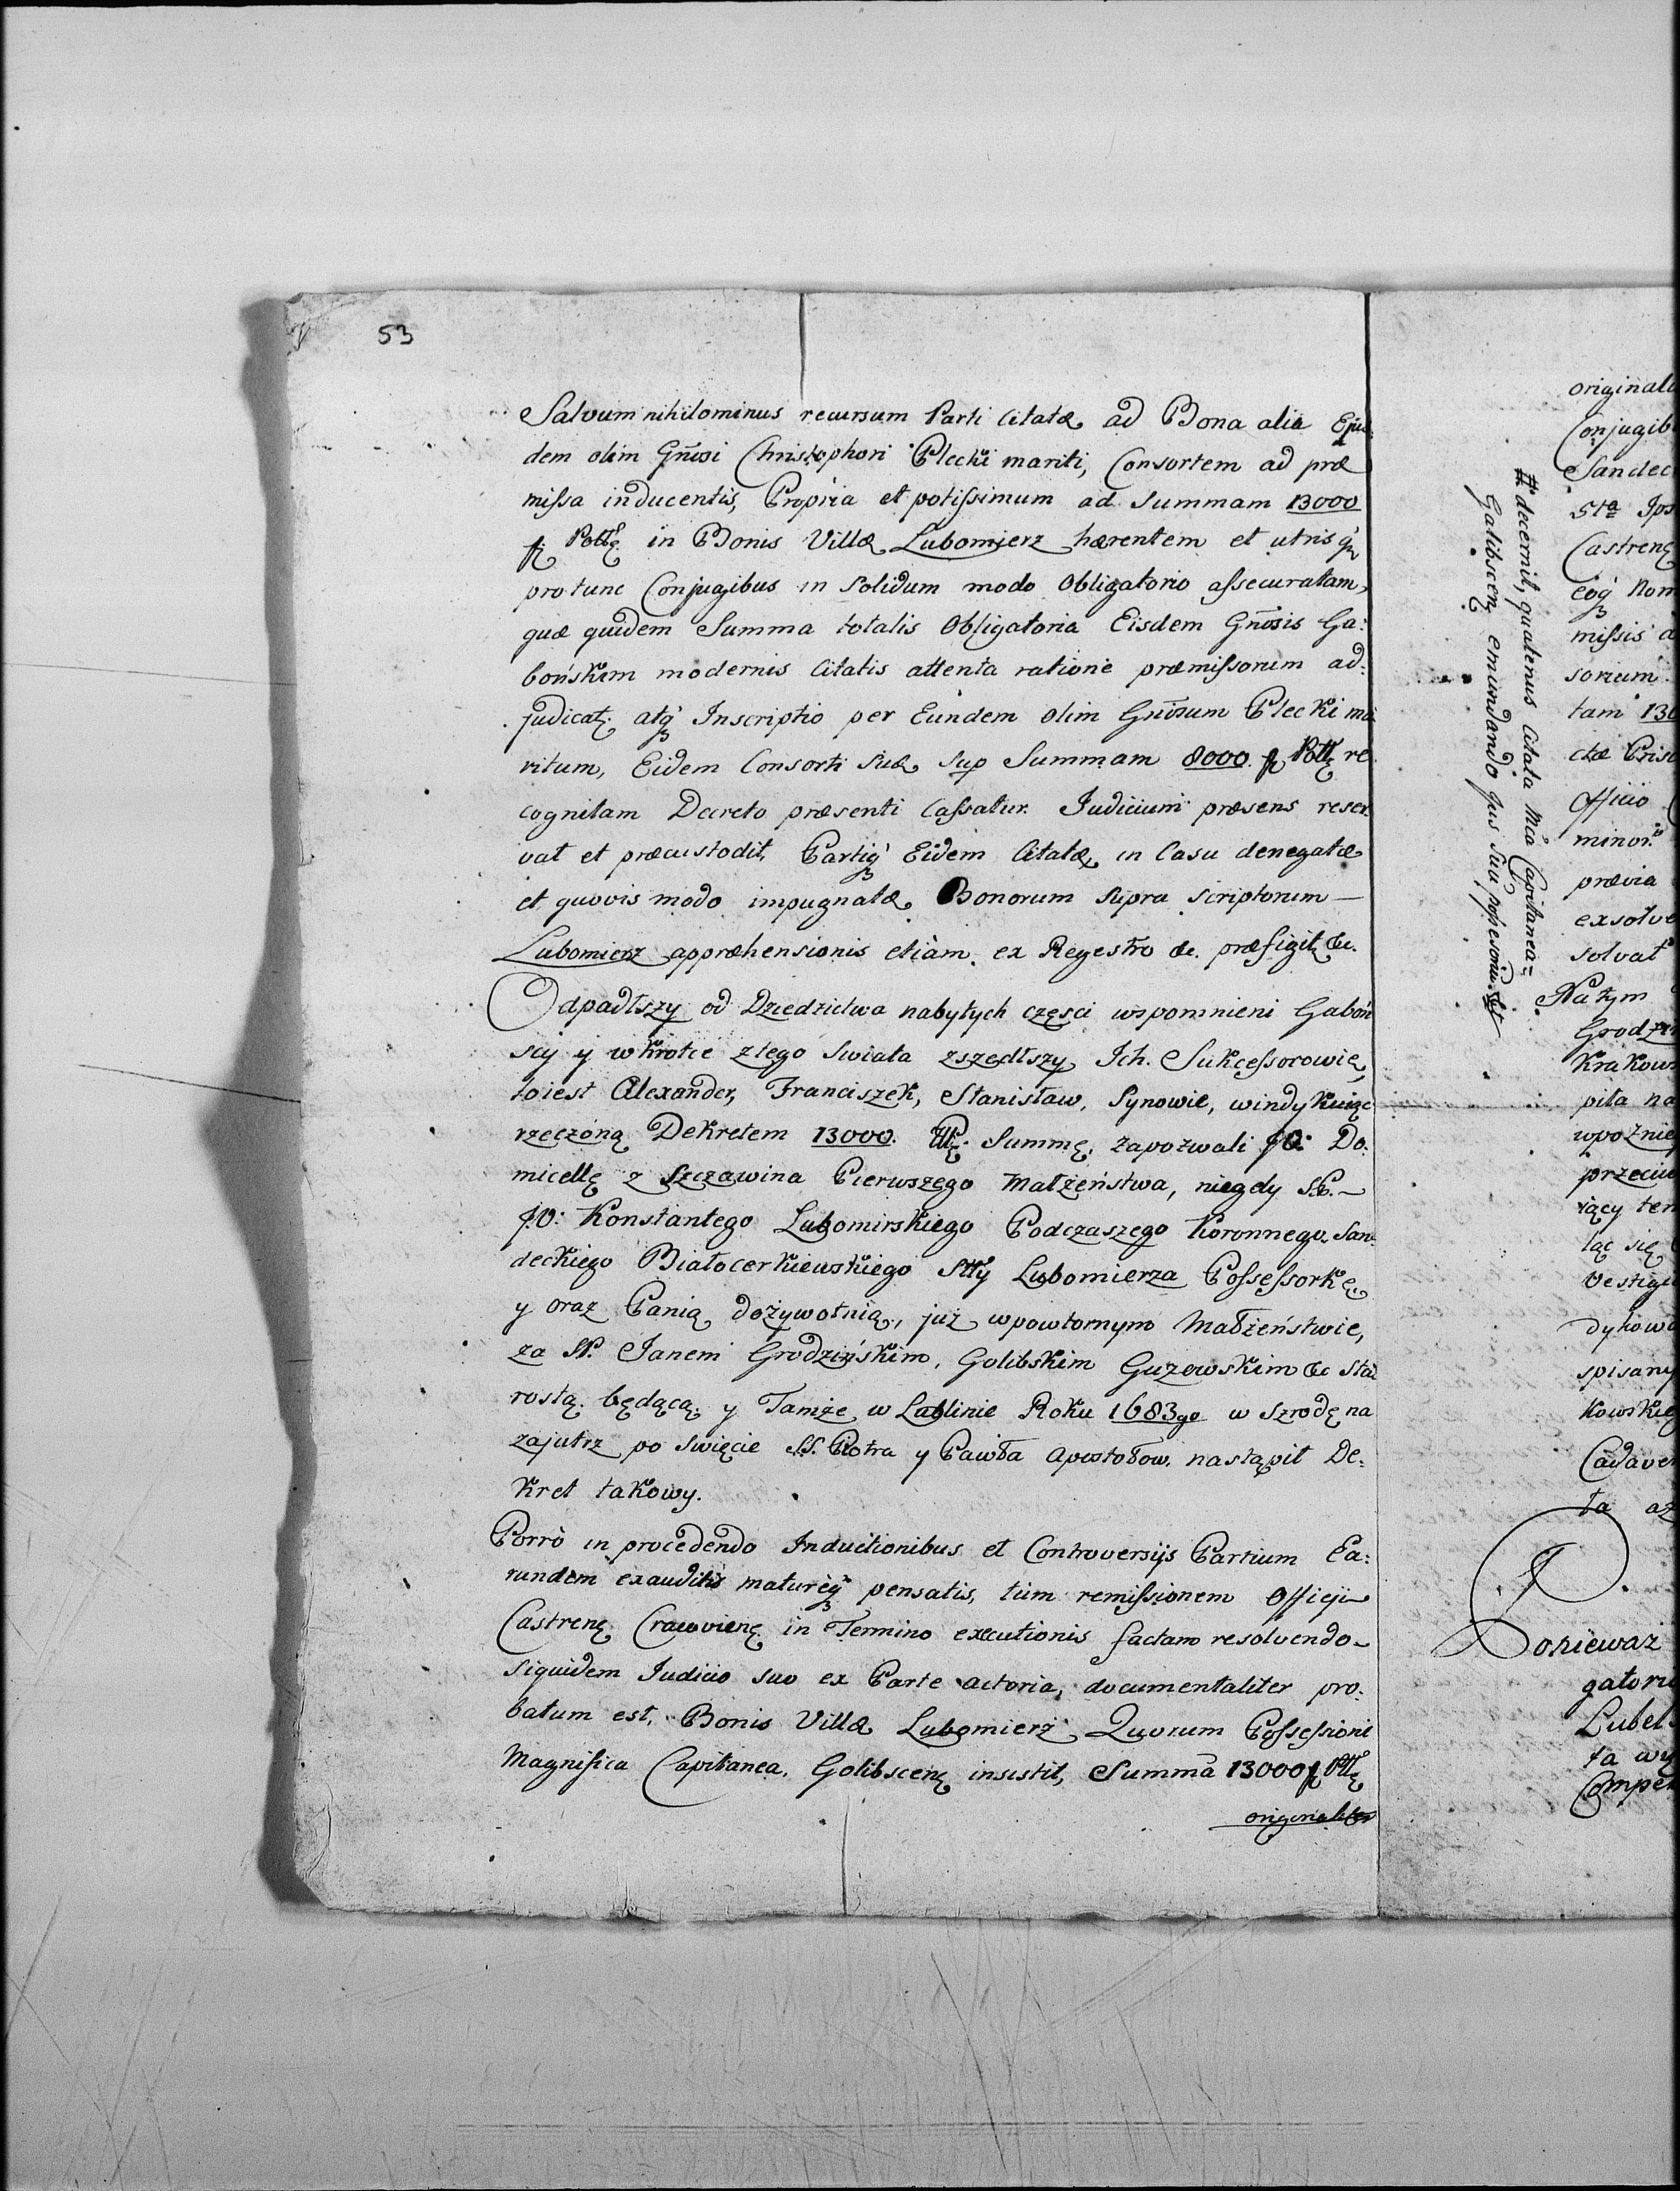 53
Salvum nihilominus recursum Parti Citatæ ad Bona alia Ejus
dem olim Gñosi Christophori Plecki mariti, Consortem ad præ
missa inducentis, Propria et potissimum ad Summam 13000
in Bonis Villæ Lubomierz hærentem et utrisq
protunc Conjugibus in Solidum modo Obligatorio assecuratam,
quæ quidem Summa totalis Obligatoria Eisdem Gnosis Ga:
bońskim modernis Citatis attenta ratione præmissorum ad:
judicat. atq Inscriptio per Eundem olim Gnosum Plecki ma
ritum, Eidem Consorti suæ sup Summam 8000. re
cognitam Decreto præsenti Cassatur. Judicium præsens reser
vat et præcustodit, Partiq Eidem Citatæ, in Casu denegatæ
et quovis modo impugnatæ Bonorum supra scriptorum —
Lubomierz appræhensionis etiàm ex Regestro &c. præfigit &c.
Odpadłszy od Dziedzictwa nabytych części wspomnieni Gaboń
scy y wkrotce ztego Swiata zszedłszy Ich. Sukcessorowie,
toiest Alexander, Franciszek, Stanisław, Synowie, windykuiąc
rzeczoną Dekretem 13000. Summę, zapozwali JO: Do:
micellę z Szczawina Pierwszego Małżeństwa, niegdy S.P. —
J.O: Konstantego Lubomirskiego Podczaszego Koronnego. San:
deckiego Białocerkiewskiego Stty Lubomierza Possessorkę,
y oraz Panią dożywotnią, już wpowtornym Małżeństwie,
za JP. Janem Grodzińskim, Golibskim Guzowskim &c Sta
rostą będącą, y Tamże w Lublinie Roku 1683go w Szrodę na
zajutrz po Swięcie SS. Piotra y Pawła Apostołow. nastąpił De:
kret takowy.
Porrò in procedendo Inductionibus et Controversijs Partium Ea:
rundem exauditis maturèq pensatis, tùm remissionem Officij
Castren Cracovien in Termino executionis factam resolvendo
siquidem Judicio suo ex Parte actoria, documentaliter pro:
batum est, Bonis Villæ Lubomierz Quorum Possessioni
Magnifica Capitanea. Golibscen insistit, Summa 13000
originaliter
# decernit, quatenus Citata Mca Capitanea
Galibscen emundando jus suu possesoriu
Conjugib
Sandec
Castrenę
missis a
sorium
tam 130
Officio
minor.
prævia
exsolve
solvat
Na tym
Grodzi
Krakows
piła na
wpoźnie
przeciw
iący ten
ląc się
Vestigi
dykowa
spisany
kowskie
Cadaver
ta az
Ponieważ
gatoriu
Lubels
ta wy
Compe